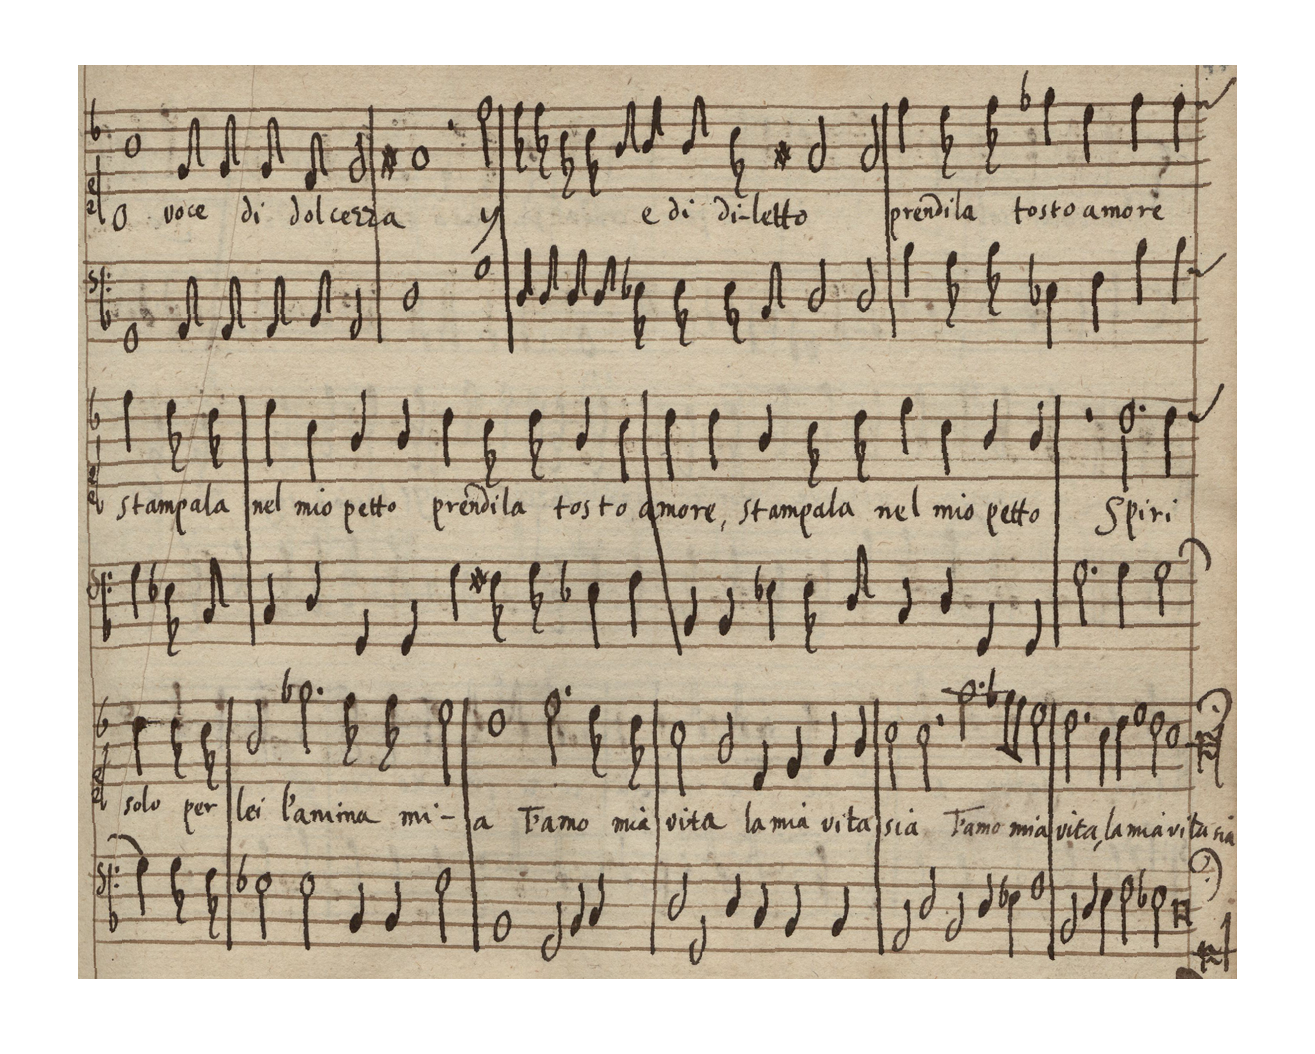 O voce di dolcezza y e di di-letto prendila tosto amore
stampala nel mio petto prendila tosto amore, stampala nel mio petto Spiri
solo per lei l'amina mi-a T'amo mia vita la mia vita sia T'amo mia vita, la mia vita sia